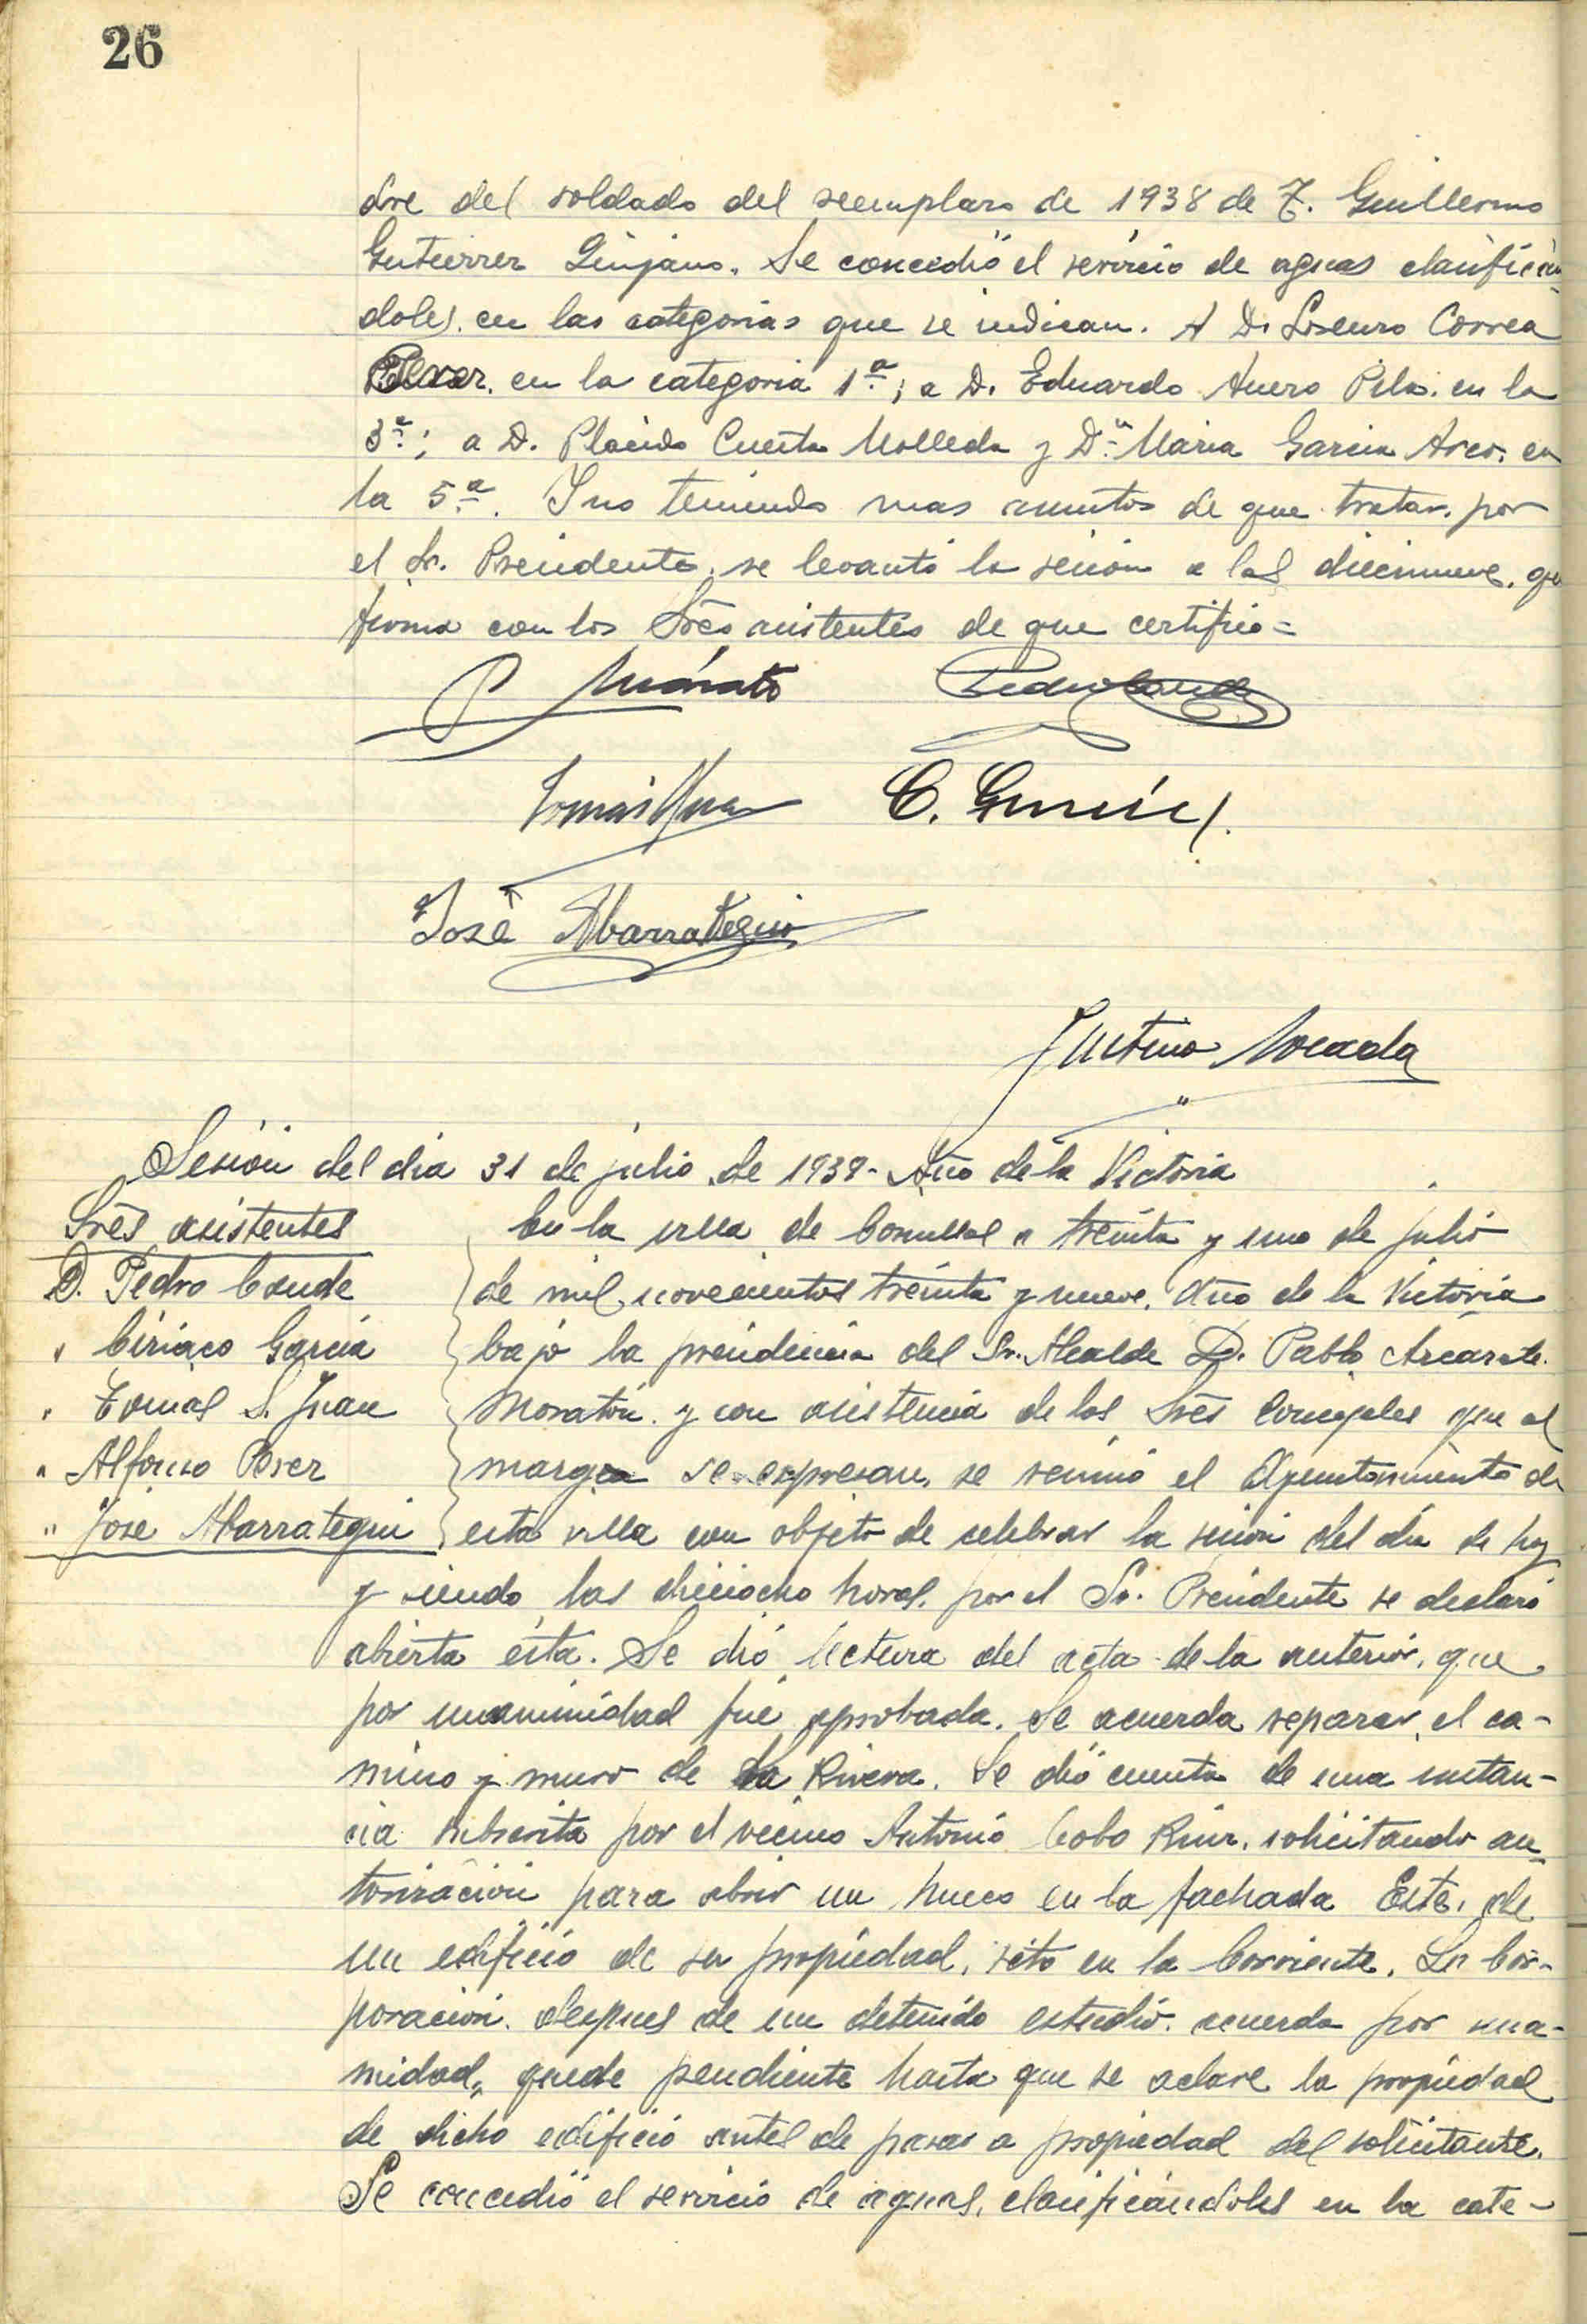 26
dre del soldado del reemplazo de 1938 de F. Guillermo
Gutierrez Quijano. Se concedió el servicio de aguas clasifican
doles. en las categorias que se indican. A D. Lorenzo Correa
en la categoria 1ª; a D. Eduardo Auero en la
3ª; a D. Placido Cuesta Molleda y Dª Maria Garcia Arco. en
la 5ª. Y no teniendo mas asuntos de que tratar. por
el Sr. Presidente, se levantó la sesion a las diecinueve. que
firma con los Sres asistentes de que certifico=
P. Pedro Conde
Tomás S. Juan C. García
José Abarrategui
Justino
Sesión del dia 31 de julio de 1939- Año de la Victoria
Sres asistentes
D. Pedro Conde
" Ciriaco García
" Tomas S. Juan
" Alfonso Perez
" José Abarrategui
En la villa de Comillas a treinta y uno de julio
de mil novecientos treinta y nueve. Año de la Victoria
bajo la presidencia del Sr. Alcalde D. Pablo Azcarate
Moratón. y con asistencia de los Sres Concejales que al
margen se expresan, se reunió el Ayuntamiento de
esta villa con objeto de celebrar la sesión del dia de hoy
y siendo las dieciocho horas. por el Sr. Presidente se declaró
abierta ésta. Se dió lectura del acta de la anterior, que
por unanimidad fué aprobada. Se acuerda reparar el ca-
mino y muro de La Rivera. Se dió cuenta de una instan-
cia subscrita por el vecino Antonio Cobo Ruiz. solicitando au-
torización para abrir un hueco en la fachada Este, de
un edificio de su propiedad, sito en la Corriente. La Cor-
poración. despues de un detenido estudio. acuerda por una-
midad, quede pendiente hasta que se aclare la propiedad
de dicho edificio antes de pasar a propiedad del solicitante.
Se concedió el servicio de aguas, clasificándoles en la cate-